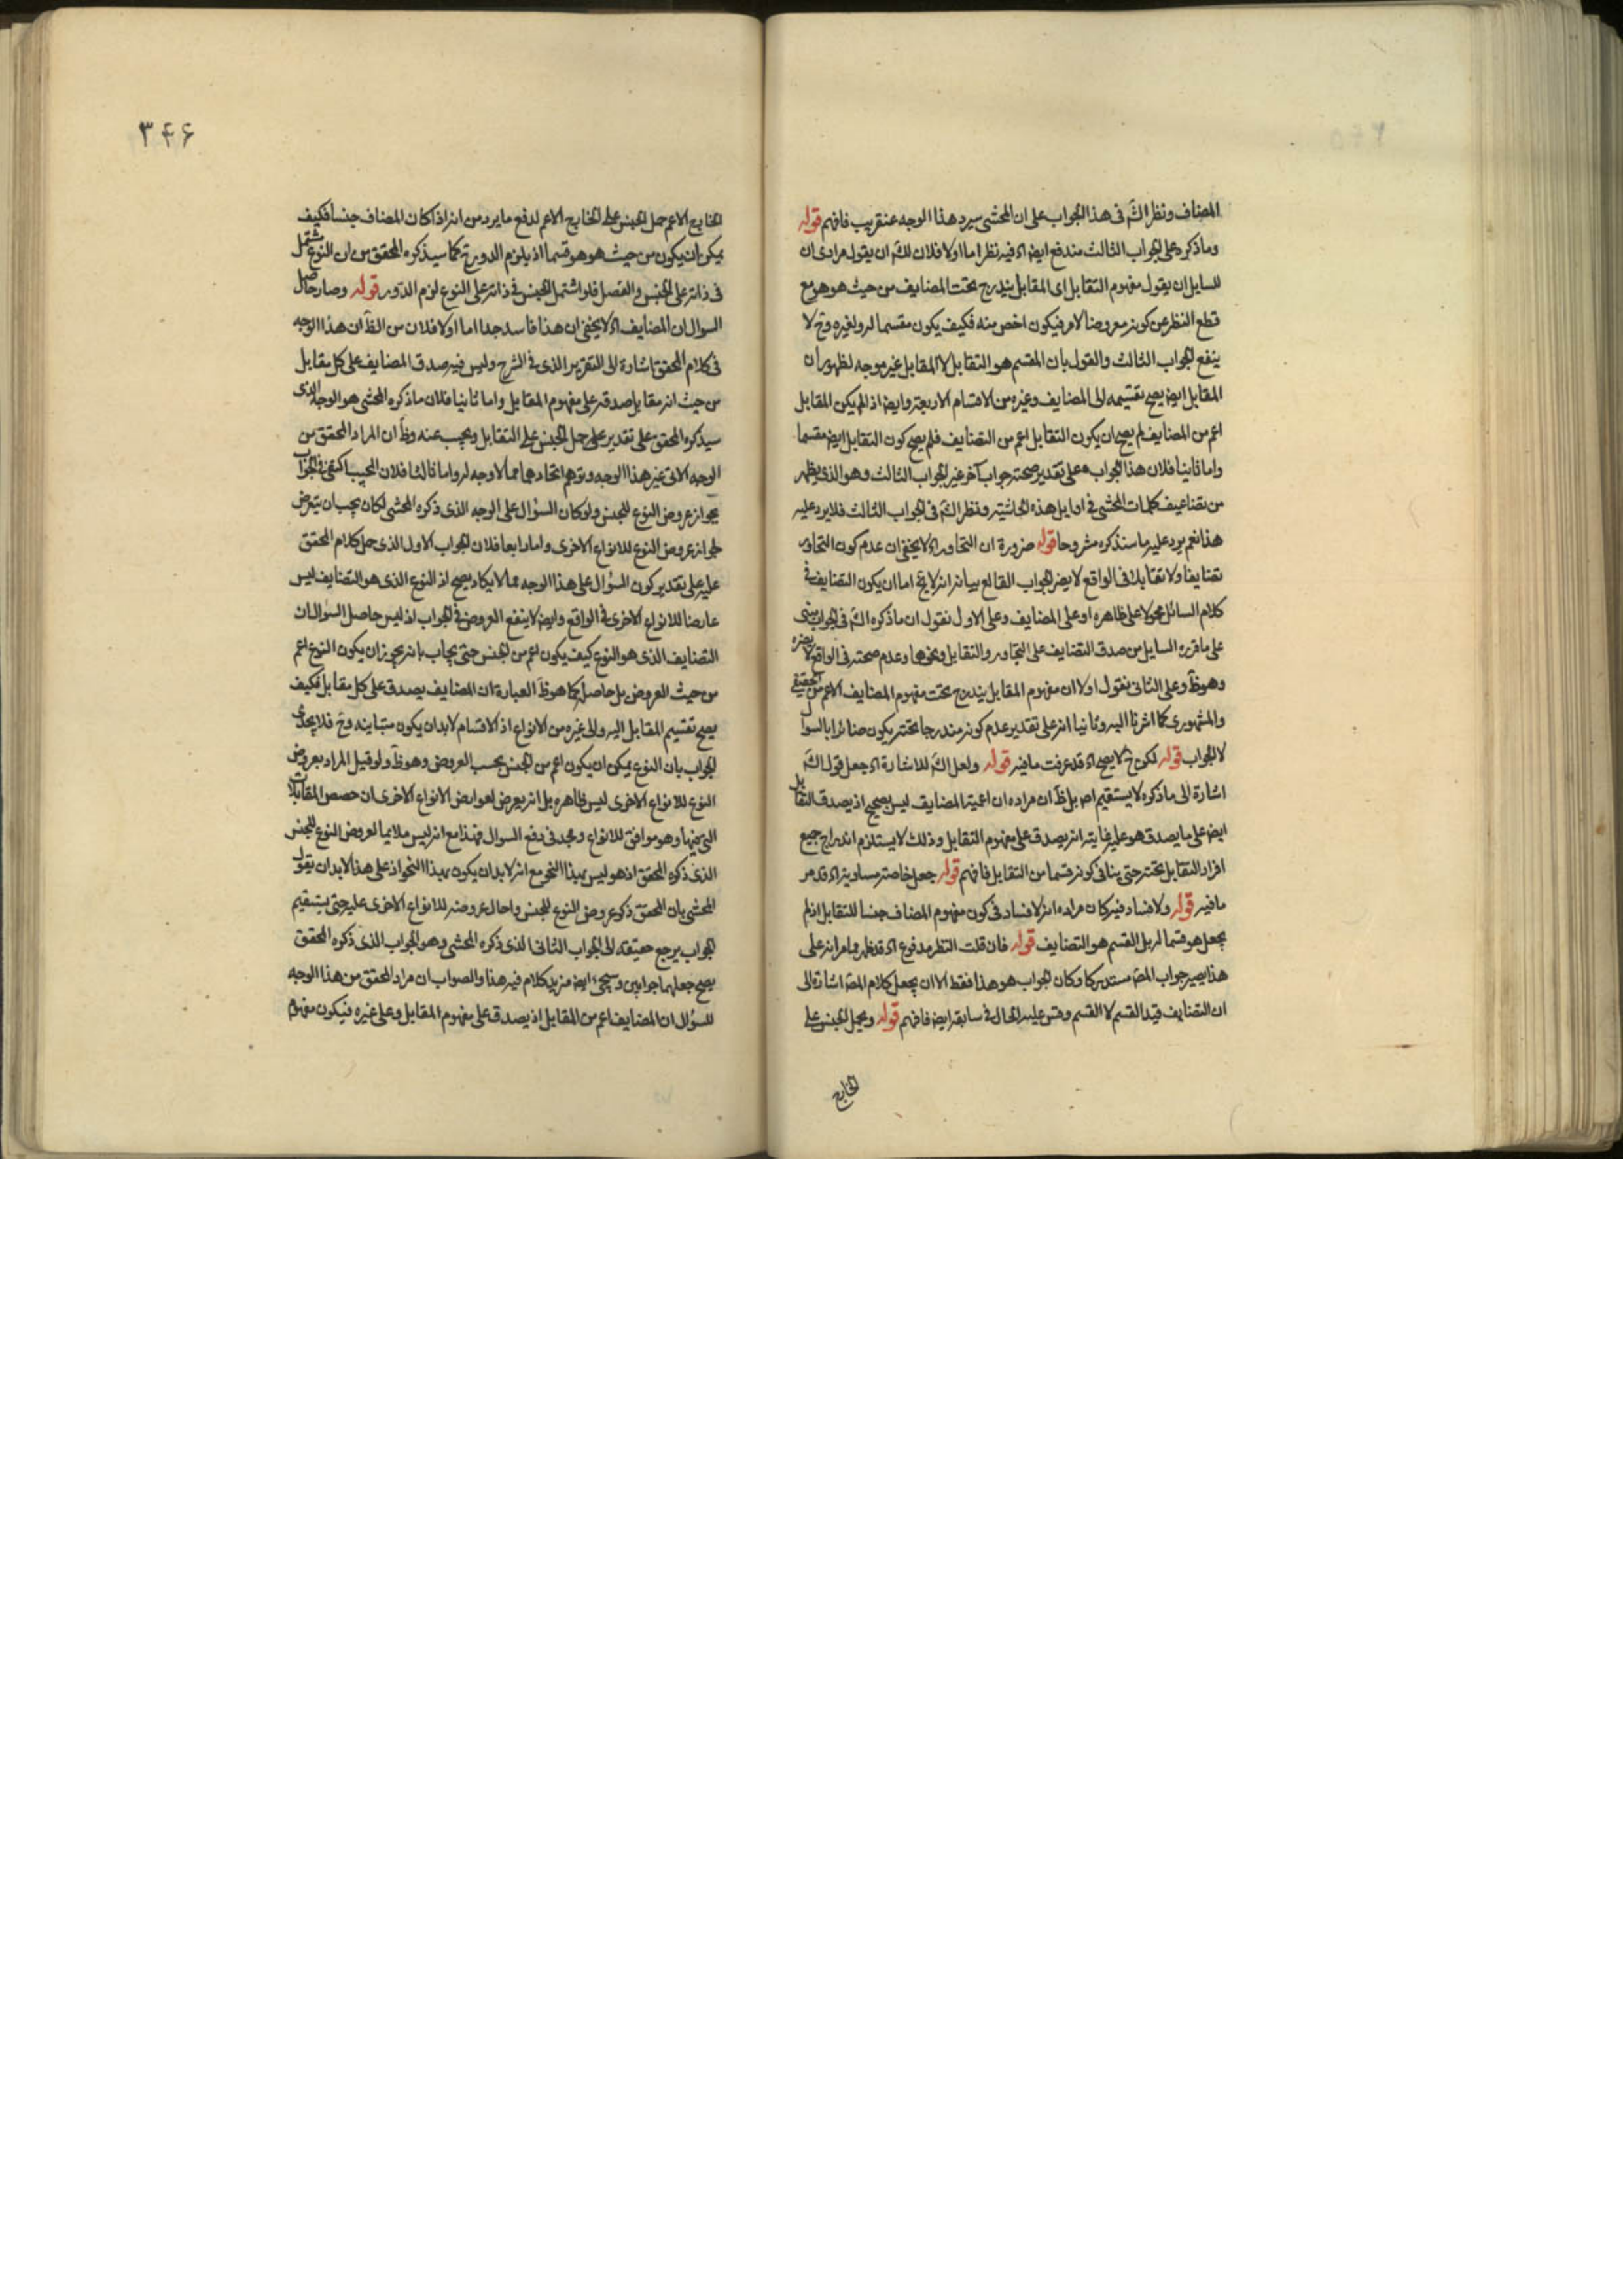 المضاف ونظر الشَ فى هذا الجواب على ان المحشى سيرد هذا الوجه عنقريب فافهم قوله
وما ذكره على الجواب الثالث مندفع ايضا اه فيه نظر اما اولا فلان للشَ ان يقول مرادى ان
للسايل ان يقول مفهوم التقابل اى المقابل يندرج تحت المضايف من حيث هو هو مع
قطع النظر عن كونه معروضا لامر فيكون اخص منه فكيف يكون مقسما له ولغيره وح لا
ينفع الجواب الثالث والقول بان المقسم هو التقابل لا المقابل غير موجه لظهور ان
المقابل ايض يصح تقسيمه الى المضايف وغيره من الاقسام الاربعة وايض اذا لم يكن المقابل
اعم من المضايف لم يصح ان يكون التقابل اعم من التضايف فلم يصح كون التقابل ايض مقسما
واما ثانيا فلان هذا الجواب على تقدير صحته جواب آخر غير الجواب الثالث وهو الذى يظهر
من تضاعيف كلمات المحشى فى اوايل هذه الحاشية ونظر الشَ فى الجواب الثالث فلا يرد عليه
هذا نعم يرد عليه ما سنذكره مشروحا قوله ضرورة ان التجاور اه لا يخفى ان عدم كون التجاور
تضايفا ولا تقابلا فى الواقع لا يضر الجواب القالع بيانه انه لا يخ اما ان يكون التضايف فى
كلام السائل محمولا على ظاهره او على المضايف وعلى الاول نقول ان ما ذكره الشَ فى الجواب مبنى
على ما قرره السايل من صدق التضايف على التجاور والتقابل ونحوها وعدم صحته فى الواقع لا يضره
وهو ظَ وعلى الثانى نقول اولا ان مفهوم المقابل يندرج تحت مفهوم المضايف الاعم من الحقيقى
والمشهورى كما اشرنا اليه وثانيا انه على تقدير عدم كونه مندرجا تحته يكون ضائرا بالسوا
لا الجواب قوله لكن ح لا يصح اه قد عرفت ما فيه قوله ولعل الشَ للاشارة اه جعل قول الشَ
اشارة الى ما ذكره لا يستقيم اص بل ظَ ان مراده ان اعمية المضايف ليس بصحيح اذ يصدق التقابل
ايض على ما يصدق هو عليه غايته انه يصدق على مفهوم التقابل وذلك لا يستلزم اندراج جميع
افراد التقابل تحته حتى ينافى كونه قسما من التقابل فافهم قوله جعل خاصة مساوية اه قد مر
ما فيه قوله ولا فساد فيه كان مراده انه لا فساد فى كون مفهوم المضاف جنسا للتقابل اذ لم
يجعل هو قسما له بل القسم هو التضايف قوله فان قلت النظر مدفوع اه قد ظهر مما مر انه على
هذا يصير جواب المصَ مستدركا وكان الجواب هو هذا فقط الا ان يجعل كلام المصَ اشارة الى
ان التضايف قيد القسم لا القسم وقس عليه الحال فى سابقه ايض فافهم قوله ويحمل الجنس على
الخارج
٣٤۶
الخارج الاعم حمل الجنس على الخارج الاعم لدفع ما يرد من انه اذا كان المضاف جنسا فكيف
يمكن ان يكون من حيث هو هو قسما اذ يلزم الدور ح كما سيذكره المحقق من ان النوع يشتمل
فى ذاته على الجنس والفصل فلو اشتمل الجنس فى ذاته على النوع لزم الدور قوله وصار حاصل
السوال ان المضايف اه لا يخفى ان هذا فاسد جدا اما اولا فلان من الظَ ان هذا الوجه
فى كلام المحقق اشارة الى التقرير الذى فى الشرح وليس فيه صدق المضايف على كل مقابل
من حيث انه مقابل صدقه على مفهوم المقابل واما ثانيا فلان ما ذكره المحشى هو الوجه الذى
سيذكره المحقق على تقدير على حمل الجنس على التقابل ويجيب عنه وظَ ان المراد المحقق من
الوجه الاتى غير هذا الوجه وتوهم اتحادهما مما لا وجه له واما ثالثا فلان المجيب اكتفى فى الجواب
بجواز عروض النوع للجنس ولو كان السؤال على الوجه الذى ذكره المحشى لكان يجب ان يتعرض
لجواز عروض النوع للانواع الاخرى واما رابعا فلان الجواب الاول الذى حمل كلام المحقق
عليه على تقدير كون السؤال على هذا الوجه مما لا يكاد يصح اذ النوع الذى هو التضايف ليس
عارضا للانواع الاخرى فى الواقع وايض لا ينفع العروض فى الجواب اذ ليس حاصل السؤال ان
التضايف الذى هو النوع كيف يكون اعم من الجنس حتى يجاب بانه يجوز ان يكون النوع اعم
من حيث العروض بل حاصل كما هو ظَ العبارة ان المضايف يصدق على كل مقابل فكيف
يصح تقسيم المقابل اليه والى غيره من الانواع اذ الاقسام لابد ان يكون متباينة وح فلا يجدى
الجواب بان النوع يمكن ان يكون اعم من الجنس بحسب العروض وهو ظَ ولو قيل المراد بعروض
النوع للانواع الاخرى ليس ظاهره بل انه يعرض لعوارض الانواع الاخرى ان حصص المقابلات
التى فيها وهو موافق للانواع ومجد فى دفع السوال فهذا مع انه ليس ملايما لعروض النوع للجنس
الذى ذكره المحقق اذ هو ليس بهذا النحو مع انه لابد ان يكون بهذا النحو اذ على هذا لابد ان يقول
المحشى بان المحقق ذكر عروض النوع للجنس واحال عروضه للانواع الاخرى عليه حتى يستقيم
الجواب يرجع حقيقته الى الجواب الثانى الذى ذكره المحشى وهو الجواب الذى ذكره المحقق
يصح جعلهما جوابين وسيجئ ايض مزيد كلام فيه هذا والصواب ان مراد المحقق من هذا الوجه
للسؤال ان المضايف اعم من المقابل اذ يصدق على مفهوم المقابل وعلى غيره فيكون مفهوم